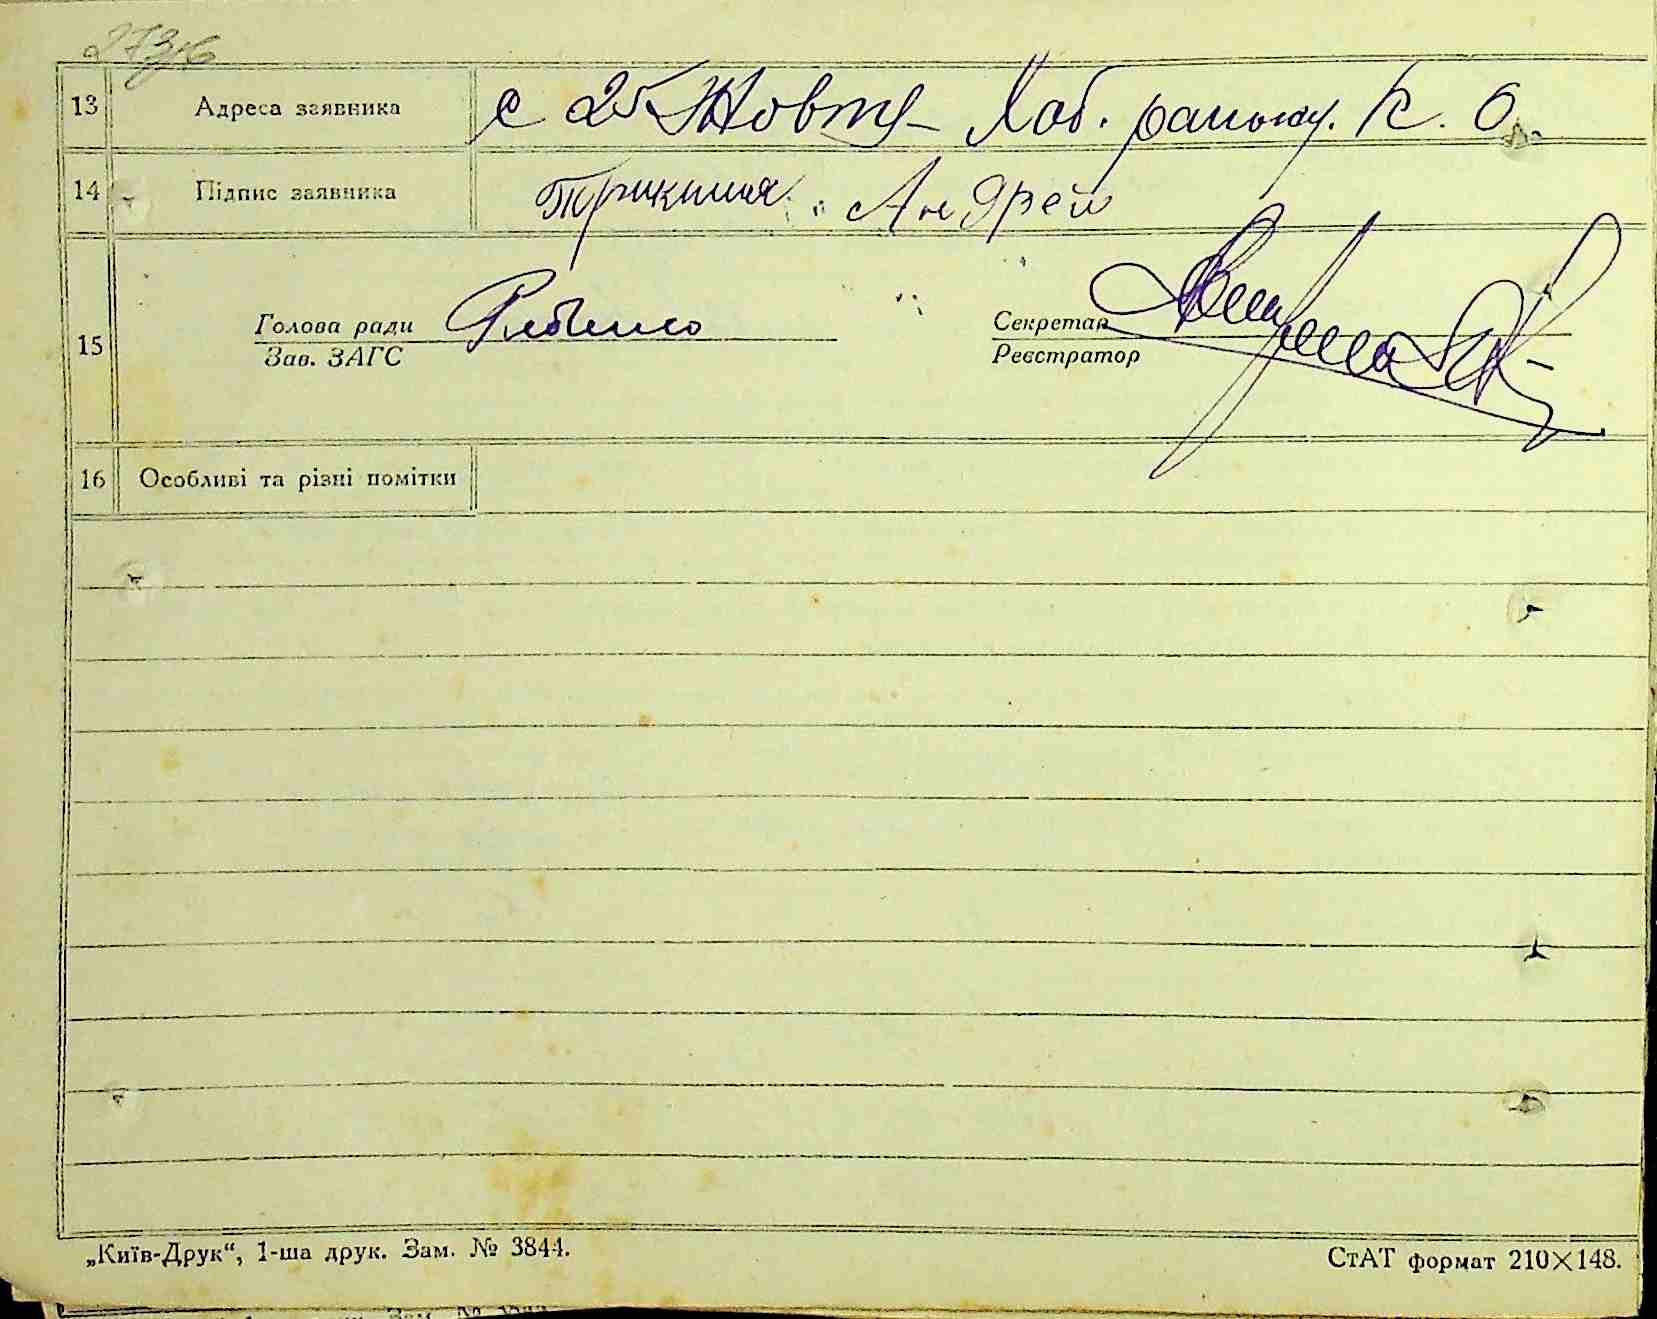 13 Адреса заявника с 25 Жовтня Хаб. району. К. О.
14 Підпис заявника Андрей
15 Голова ради Рябченко Секретар
Зав. ЗАГС Реєстратор
16 Особливі та різні помітки
„Київ-Друк“, 1-ша друк. Зам. № 3844. СтАТ формат 210×148.